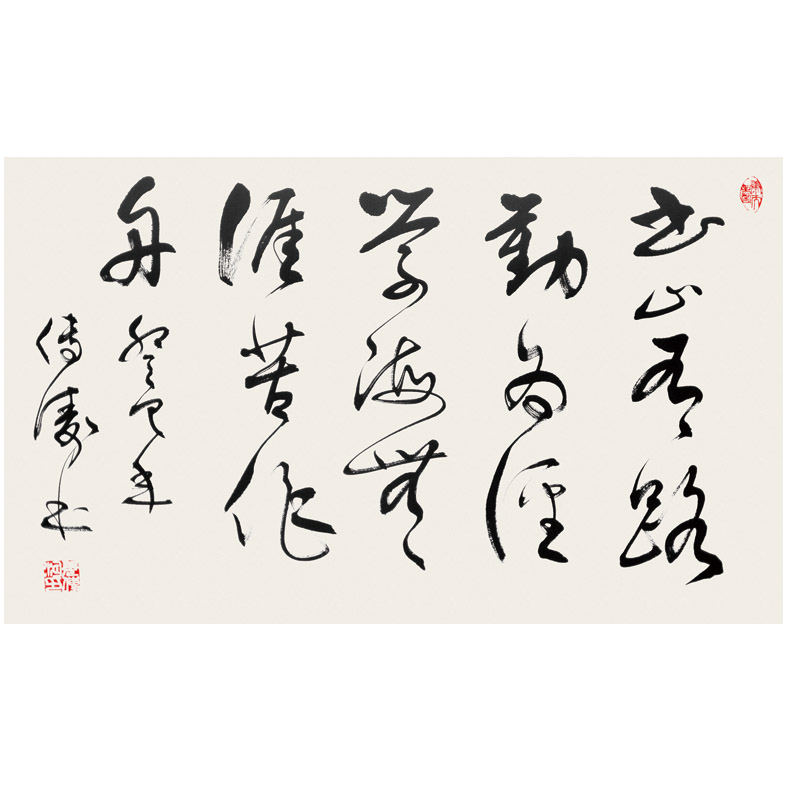 书山有路
勤为径
学海无
涯苦作
舟
癸巳年
传凌书